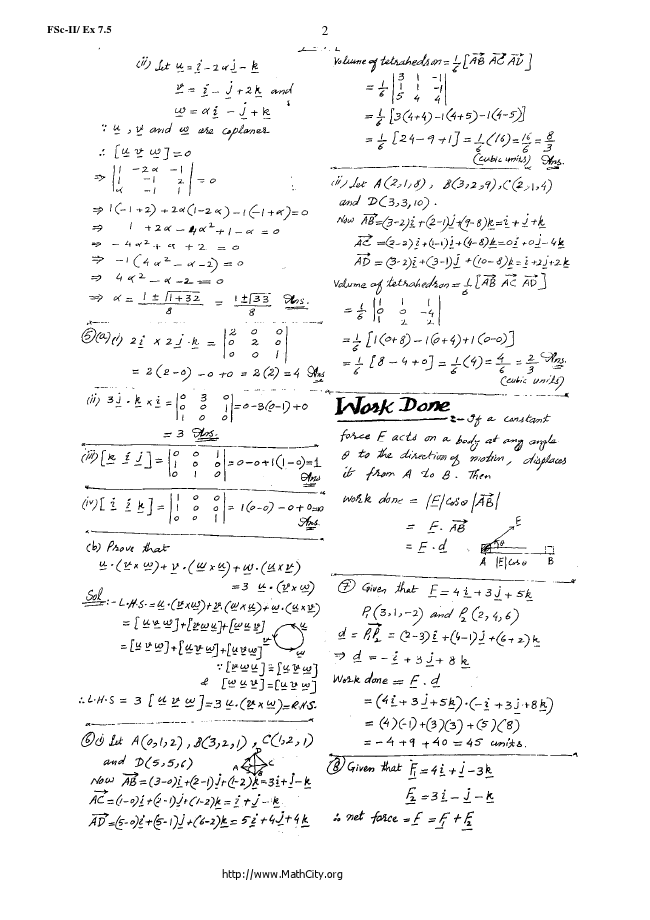 FSc-II/ Ex 7.5
2
(ii) Let u = i - 2αj - k
v = i - j + 2k and
w = αi - j + k
∵ u, v and w are coplaner
∴ [u v w] = 0
⇒ |1 -2α -1|
|1 -1 2| = 0
|α -1 1|
⇒ 1(-1+2) + 2α(1-2α) - 1(-1+α) = 0
⇒ 1 + 2α - 4α² + 1 - α = 0
⇒ - 4α² + α + 2 = 0
⇒ -1(4α² - α - 2) = 0
⇒ 4α² - α - 2 = 0
⇒ α = (1 ± √(1+32))/8 = (1 ± √33)/8 Ans.
⑤(a)(i) 2i × 2j · k = |2 0 0|
|0 2 0|
|0 0 1|
= 2(2-0) - 0 + 0 = 2(2) = 4 Ans
(ii) 3j · k × i = |0 3 0|
|0 0 1| = 0 - 3(0-1) + 0
|1 0 0|
= 3 Ans.
(iii) [k i j] = |0 0 1|
|1 0 0| = 0 - 0 + 1(1-0) = 1
|0 1 0| Ans
(iv) [i i k] = |1 0 0|
|1 0 0| = 1(0-0) - 0 + 0 = 0
|0 0 1| Ans.
(b) Prove that
u·(v×w) + v·(w×u) + w·(u×v)
= 3 u·(v×w)
Sol :- L.H.S. = u·(v×w) + v·(w×u) + w·(u×v)
= [u v w] + [v w u] + [w u v] u
= [u v w] + [u v w] + [u v w] v w
∵ [v w u] = [u v w]
& [w u v] = [u v w]
∴ L.H.S = 3 [u v w] = 3 u·(v×w) = R.H.S.
⑥(i) Let A(0,1,2), B(3,2,1), C(1,2,1)
and D(5,5,6)
Now AB = (3-0)i + (2-1)j + (1-2)k = 3i + j - k
AC = (1-0)i + (2-1)j + (1-2)k = i + j - k
AD = (5-0)i + (5-1)j + (6-2)k = 5i + 4j + 4k
Volume of tetrahedron = 1/6 [AB AC AD]
= 1/6 |3 1 -1|
|1 1 -1|
|5 4 4|
= 1/6 [3(4+4) - 1(4+5) - 1(4-5)]
= 1/6 [24 - 9 + 1] = 1/6 (16) = 16/6 = 8/3
(cubic units) Ans.
(ii) Let A(2,1,8), B(3,2,9), C(2,1,4)
and D(3,3,10).
Now AB = (3-2)i + (2-1)j + (9-8)k = i + j + k
AC = (2-2)i + (1-1)j + (4-8)k = 0i + 0j - 4k
AD = (3-2)i + (3-1)j + (10-8)k = i + 2j + 2k
Volume of tetrahedron = 1/6 [AB AC AD]
= 1/6 |1 1 1|
|0 0 -4|
|1 2 2|
= 1/6 [1(0+8) - 1(0+4) + 1(0-0)]
= 1/6 [8 - 4 + 0] = 1/6 (4) = 4/6 = 2/3 Ans.
(cubic units)
Work Done :- If a constant
force F acts on a body at any angle
θ to the direction of motion, displaces
it from A to B. Then
work done = |F| cosθ |AB|
= F · AB F
= F · d θ
A |F|cosθ B
⑦ Given that F = 4i + 3j + 5k
P₁(3,1,-2) and P₂(2,4,6)
d = P₁P₂ = (2-3)i + (4-1)j + (6+2)k
⇒ d = - i + 3j + 8k
Work done = F · d
= (4i + 3j + 5k)·(-i + 3j + 8k)
= (4)(-1) + (3)(3) + (5)(8)
= -4 + 9 + 40 = 45 units.
⑧ Given that F₁ = 4i + j - 3k
F₂ = 3i - j - k
∴ net force = F = F₁ + F₂
http://www.MathCity.org